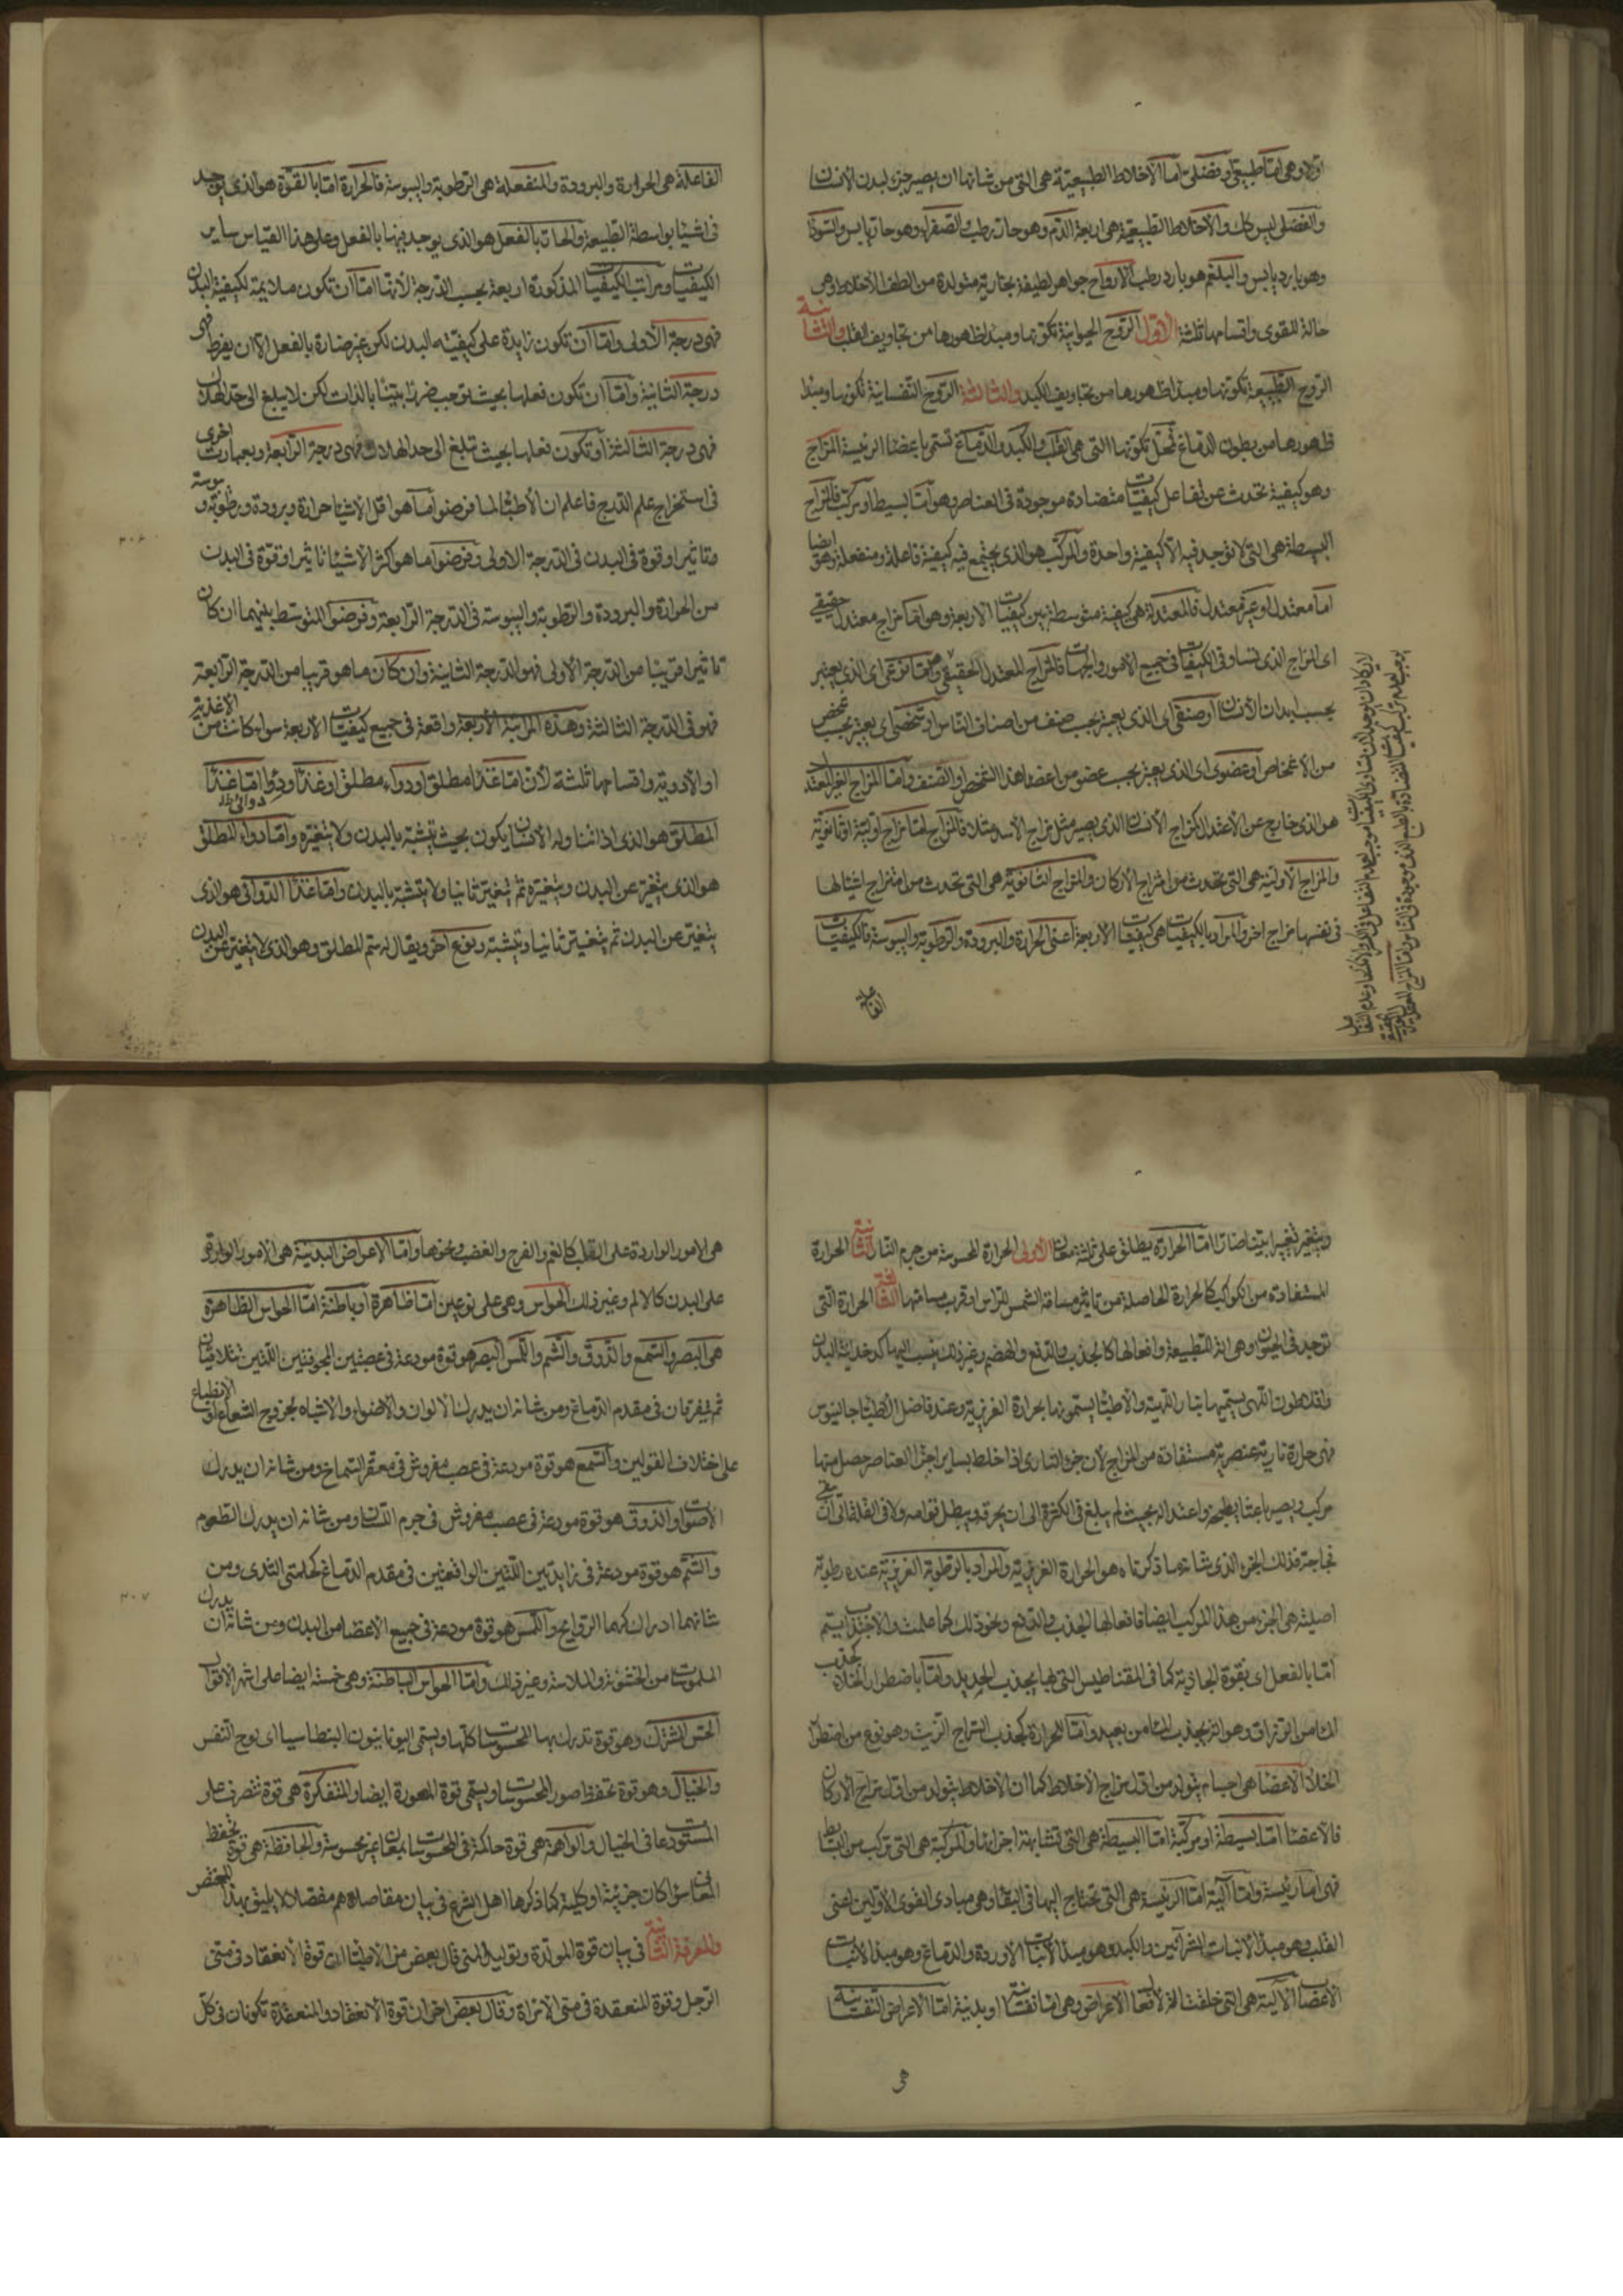 اولا وهي اما طبيعي او فضلي اما الاخلاط الطبيعية هي التي من شانها ان يصير جزء لبدن الانسان
والفضلي ليس كك والاخلاط الطبيعية هي اربعة الدم وهو حار رطب والصفراء وهو حار يابس والسوداء
وهو بارد يابس والبلغم هو بارد رطب الارواح جواهر لطيفة بخارية متولدة من الطف الاخلاط وهي
حالة للقوى واقسامها ثلثة الاول الروح الحيوانية تكونها ومبدا ظهورها من تجاويف القلب والثانية
الروح الطبيعة تكونها ومبدا ظهورها من تجاويف الكبد والثالثة الروح النفسانية تكونها ومبدا
ظهورها من بطون الدماغ فمحل تكونها التي هي القلب والكبد والدماغ تسمى باعضا الرئيسة المزاج
وهو كيفية تحدث عن تفاعل كيفيات متضادة موجودة في العناصر وهو اما بسيط او مركب فالمزاج
البسيطة هي التي لا توجد فيه الا كيفية واحدة والمركب هو الذي يجتمع فيه كيفية فاعلة ومنفعلة وهو ايضا
اما معتدل او غير معتدل فالمعتدلة هي كيفية متوسطة بين كيفيات الاربعة وهو اما مزاج معتدل حقيقي
اى المزاج الذي تساوى الكيفيات في جميع الامور والجهات فالمزاج المعتدل الحقيقي واما نوعي اى الذي يعتبر
بحسب ابدان الانسان او صنفي اى الذي يعتبر بحسب صنف من اصناف الناس او شخصي اى يعتبر بحسب شخص
من الاشخاص او عضوى اى الذي يعتبر بحسب عضو من اعضا هذا الشخص او الصنف واما المزاج الغير المعتدل
هو الذي خارج عن الاعتدال كمزاج الانسان الذي يصير مثل مزاج الاسد مثلا فالمزاج اما مزاج اولية او ثانوية
والمزاج الاولية هي التي تحدث من امتزاج الاركان والمزاج الثانوية هي التي تحدث من امتزاج اشيا لها
في نفسها مزاج اخر والمراد بالكيفيات هي كيفيات الاربعة اعنى الحرارة والبرودة والرطوبة واليبوسة فالكيفيات
الفاعلة
الفاعلة هي الحرارة والبرودة والمنفعلة هي الرطوبة واليبوسة فالحرارة اما بالقوة هو الذي يوجد
في اشيا بواسطة الطبيعة والحار بالفعل هو الذي يوجد فيها بالفعل وعلى هذا القياس ساير
الكيفيات ومراتب الكيفيات المذكورة اربعة بحسب الدرجة لانها اما ان تكون ملايمة لكيفية البدن
فهي درجة الاولى واما ان تكون زايدة على كيفية البدن لكن غير ضارة بالفعل الا ان يفرط فهي
درجة الثانية واما ان تكون فعلها بحيث توجب ضررا بينا بالذات لكن لا يبلغ الى حد الهلاك
فهي درجة الثالثة او تكون فعلها بحيث تبلغ الى حد الهلاك فهي درجة الرابعة وبعبارة اخرى
في استخراج علم التدريج فاعلم ان الاطبا لما فرضوا ما هو اقل الاشيا حرارة وبرودة ورطوبة ويبوسة
وتاثيرا وقوة في البدن في الدرجة الاولى وفرضوا ما هو اكثر الاشيا تاثيرا وقوة في البدن
من الحرارة والبرودة والرطوبة واليبوسة في الدرجة الرابعة وفرضوا المتوسط بينهما ان كان
تاثيرا قريبا من الدرجة الاولى فهو الدرجة الثانية وان كان ما هو قريبا من الدرجة الرابعة
فهو في الدرجة الثالثة وهذه المراتبة الاربعة واقعة في جميع كيفيات الاربعة سواء كانت من الاغذية
او الادوية واقسامها ثلثة لان اما غذا مطلق او دواء مطلق او غذا ودوا اما غذا
المطلق هو الذي اذا تناوله الانسان يكون بحيث يتشبه بالبدن ولا يتغيره واما دوا المطلق
هو الذي يتغير عن البدن ويتغيره ثم يتغير ثانيا ولا يتشبه بالبدن واما غذا الدوائي هو الذي
يتغير عن البدن ثم يتغير ثانيا ويتشبه ونوع اخر ويقال له سم المطلق وهو الذي لا يتغير عن البدن
ويتغير تغييرا بينا ضارا اما الحرارة يطلق على ثلثة معان الاولى الحرارة المحسوسة من جرم النار الثانية الحرارة
المستفادة من الكواكب كالحرارة الحاصلة من تاثير مسافة الشمس للراس او قرب مسافتها الثالثة الحرارة التي
توجد في الحيوان وهي الة للطبيعة وافعالها كالجذب والدفع والهضم وغير ذلك ينسب اليها كدخداء البدن
وافلاطون اللهى يسميها بنار اللهية والاطبا يسمونها بحرارة الغريزية وعند فاضل الاطبا جالينوس
فهي حرارة نارية عنصرية مستفادة من المزاج لان جزء الناري اذا خلط بساير اجزا العناصر حصل منها
مركب ويصير باعثا بطبخه واعتداله بحيث لم يبلغ في الكثرة الى ان يحرقه ويبطل قوامه ولا في القلة الى ان
فجاجة فذلك الجزء الذي شانه ما ذكرناه هو الحرارة الغريزية والمراد بالرطوبة الغريزية عنده رطوبة
اصلية هي الجزء من هذا المركب ايضا فافعالها الجذب والدفع ونحو ذلك كما علمت والاجتذاب يتم
اما بالفعل اى بقوة الجاذبة كما في المقناطيس التي بها يجذب الحديد واما باضطرار الخلاء كجذب
الماء من الزراق وهو الة يجذب الماء من بعيد واما للحرارة كجذب السراج الزيت وهو نوع من اضطرار
الخلا الاعضا هي اجسام يتولد من اول مزاج الاخلاط كما ان الاخلاط يتولد من اول مزاج الاركان
فالاعضا اما بسيطة او مركبة اما البسيطة هي التي تشابهة اجزائها والمركبة هي التي تركب من البسايط
فهي اما رئيسة واما آلية اما الرئيسة هي التي تحتاج اليها في البقا وهي مبادى القوى الاولين اعنى
القلب وهو مبدا الانبات الشرائين والكبد وهو مبدا لانبات الاوردة والدماغ وهو مبدا لانبات
الاعصاب الآلية هي التي خلقت الة لافعال الاعراض وهي اما نفسانية او بدنية اما الاعراض النفسانية
هي
هي الامور الواردة على القلب كالغم والفرح والغضب ونحوها واما الاعراض البدنية هي الامور الواردة
على البدن كالالم وغير ذلك الحواس وهي على نوعين اما ظاهرة او باطنة اما الحواس الظاهرة
هي البصر والسمع والذوق والشم واللمس البصر هو قوة مودعة في عصبتين المجوفتين اللتين تتلاقيان
ثم تتفرقان في مقدم الدماغ ومن شانه ان يدرك الالوان والاضواء والاشباه بخروج الشعاع او الانطباع
على اختلاف القولين والسمع هو قوة مودعة في عصب مفروش في مقعر الصماخ ومن شانه ان يدرك
الاصوات والذوق هو قوة مودعة في عصب مفروش في جرم اللسان ومن شانه ان يدرك الطعوم
والشم هو قوة مودعة في زايدتين اللتين الواقعتين في مقدم الدماغ كحلمتي الثدى ومن
شانهما ادراكهما الروايح واللمس هو قوة مودعة في جميع الاعضا من البدن ومن شانه ان يدرك
الملموسات من الخشونة والملاسة وغير ذلك واما الحواس الباطنة وهي خمسة ايضا على اشهر الاقوال
الحس المشترك وهو قوة تدرك بها المحسوسات كلها ويسمى اليونانيون البنطاسيا اى لوح النفس
والخيال وهو قوة تحفظ صور المحسوسات ويسمى قوة المصورة ايضا والمتفكرة هي قوة تتصرف على
المستودعات في الخيال والواهمة هي قوة حاكمة في المحسوسات بمعان غير محسوسة والحافظة هي قوة تحفظ
المعاني سواء كان جزئية او كلية كما ذكرها اهل الشرع في بيان مقاصدهم مفصلا لا يليق بهذا المختصر
والمعرفة الثانية في بيان قوة المولدة وتوليد المنى قال بعض من الاطبا ان قوة الانعقاد في منى
الرجل وقوة المنعقدة في منى الامراة وقال بعض اخر ان قوة الانعقاد والمنعقدة تكونان في كل